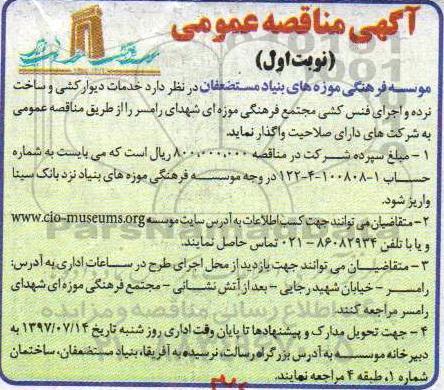 آگهی مناقصه عمومی
(نوبت اول)
موسسه فرهنگی موزه های بنیاد مستضعفان در نظر دارد خدمات دیوارکشی و ساخت
نرده و اجرای فنس کشی مجتمع فرهنگی موزه ای شهدای رامسر را از طریق مناقصه عمومی
به شرکت های دارای صلاحیت واگذار نماید.
۱- مبلغ سپرده شرکت در مناقصه ۸۰۰,۰۰۰,۰۰۰ ریال است که می بایست به شماره
حساب ۱-۱۰۰۸۰۸-۴-۱۲۲ در وجه موسسه فرهنگی موزه های بنیاد نزد بانک سینا
واریز شود.
۲- متقاضیان می توانند جهت کسب اطلاعات به آدرس سایت موسسه www.cio-museums.org
و یا با تلفن ۸۶۰۸۲۹۳۴-۰۲۱ تماس حاصل نمایند.
۳- متقاضیان می توانند جهت بازدید از محل اجرای طرح در ساعات اداری به آدرس:
رامسر - خیابان شهید رجایی - بعد از آتش نشانی - مجتمع فرهنگی موزه ای شهدای
رامسر مراجعه کنند.
۴- جهت تحویل مدارک و پیشنهادها تا پایان وقت اداری روز شنبه تاریخ ۱۳۹۷/۰۷/۱۴ به
دبیرخانه موسسه به آدرس بزرگراه رسالت، نرسیده به آفریقا، بنیاد مستضعفان، ساختمان
شماره ۱، طبقه ۴ مراجعه نمایند.